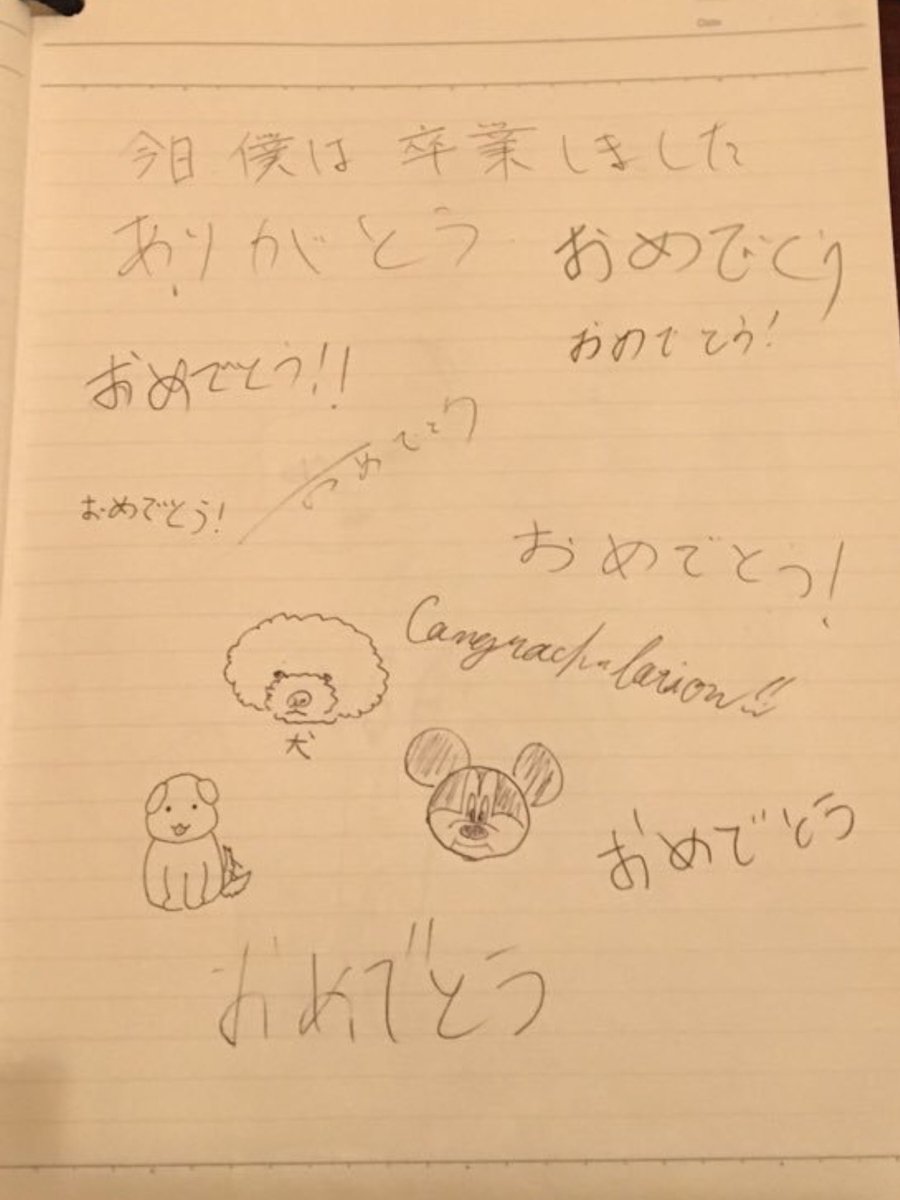 Date
今日 僕は 卒業しました
ありがとう
おめでとう
おめでとう!
おめでとう!!
おめでとう
おめでとう!
おめでとう!
Cangrachularion!!
犬
おめでとう
おめでとう